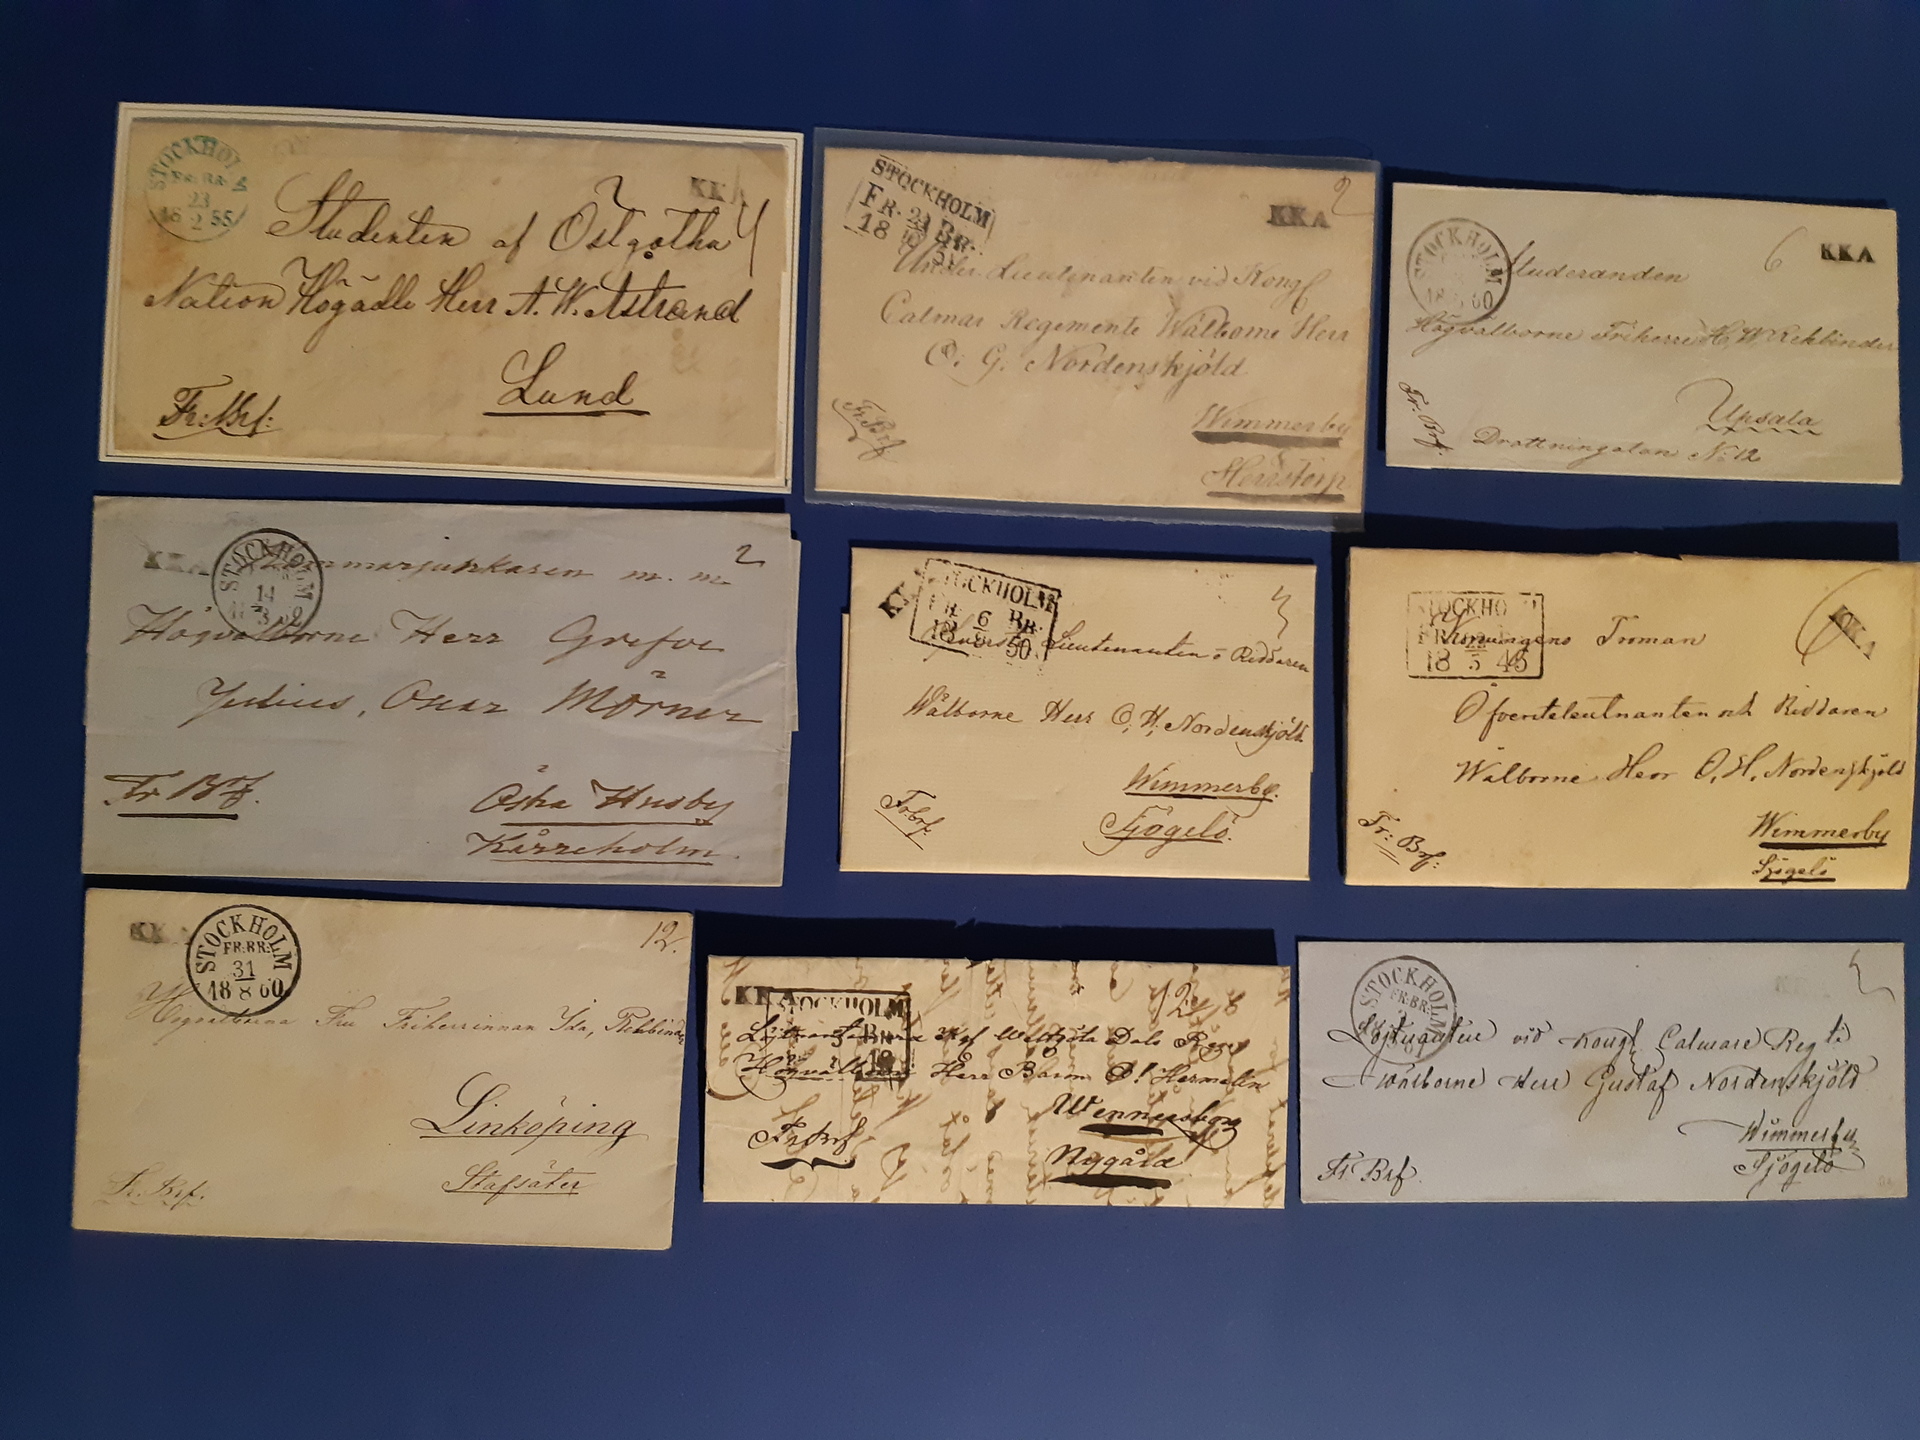 STOCKHOLM
FR. BR.
23
18 2 55
KKA
Studenten af Östgötha
Nation Högädle Herr A. W. Åstrand
Lund
Fr: Brf:
STOCKHOLM
FR. BR.
18
KKA
2
Under Lieutenanten vid Kongl
Calmar Regemente Wälborne Herr
O. G. Nordenskjöld
Wimmerby
Fr: Brf
STOCKHOLM
18 60
6
KKA
Studeranden
Högvälborne Friherre H W Rehbinder
Upsala
Drottningatan No 12
Fr. Brf.
KKA
STOCKHOLM
14
3
2
m. m.
Högvälborne Herr Grefve
Julius, Oscar Mörner
Östra Husby
Fr Brf.
STOCKHOLM
FR. 6 BR.
18 50
Lieutenanten o Riddaren
Wälborne Herr O. H. Nordenskjöld
Wimmerby.
Sjögelö.
Fr. brf.
STOCKHOLM
FR
18 5 45
KKA
Konungens Troman
Öfverstelieutnanten och Riddaren
Wälborne Herr O. H. Nordenskjöld
Wimmerby
Sjögelö
Fr: Brf:
KKA
STOCKHOLM
FR. BR.
31
18 8 60
12.
Högvälborna Fru Friherrinnan Ida, Rehbinder
Linköping
Stafsäter
Fr. Brf.
KKA
STOCKHOLM
BR
18
12
Kgl Westgöta Dals Reg
Högvälborne Herr Baron Hermelin
Wennersborg
Nygård
Fr brf
STOCKHOLM
FR. BR.
Löjtnanten vid Kongl Calmare Reg ti
Wälborne Herr Gustaf Nordenskjöld
Wimmerby
Sjögelö
Fr. Brf.